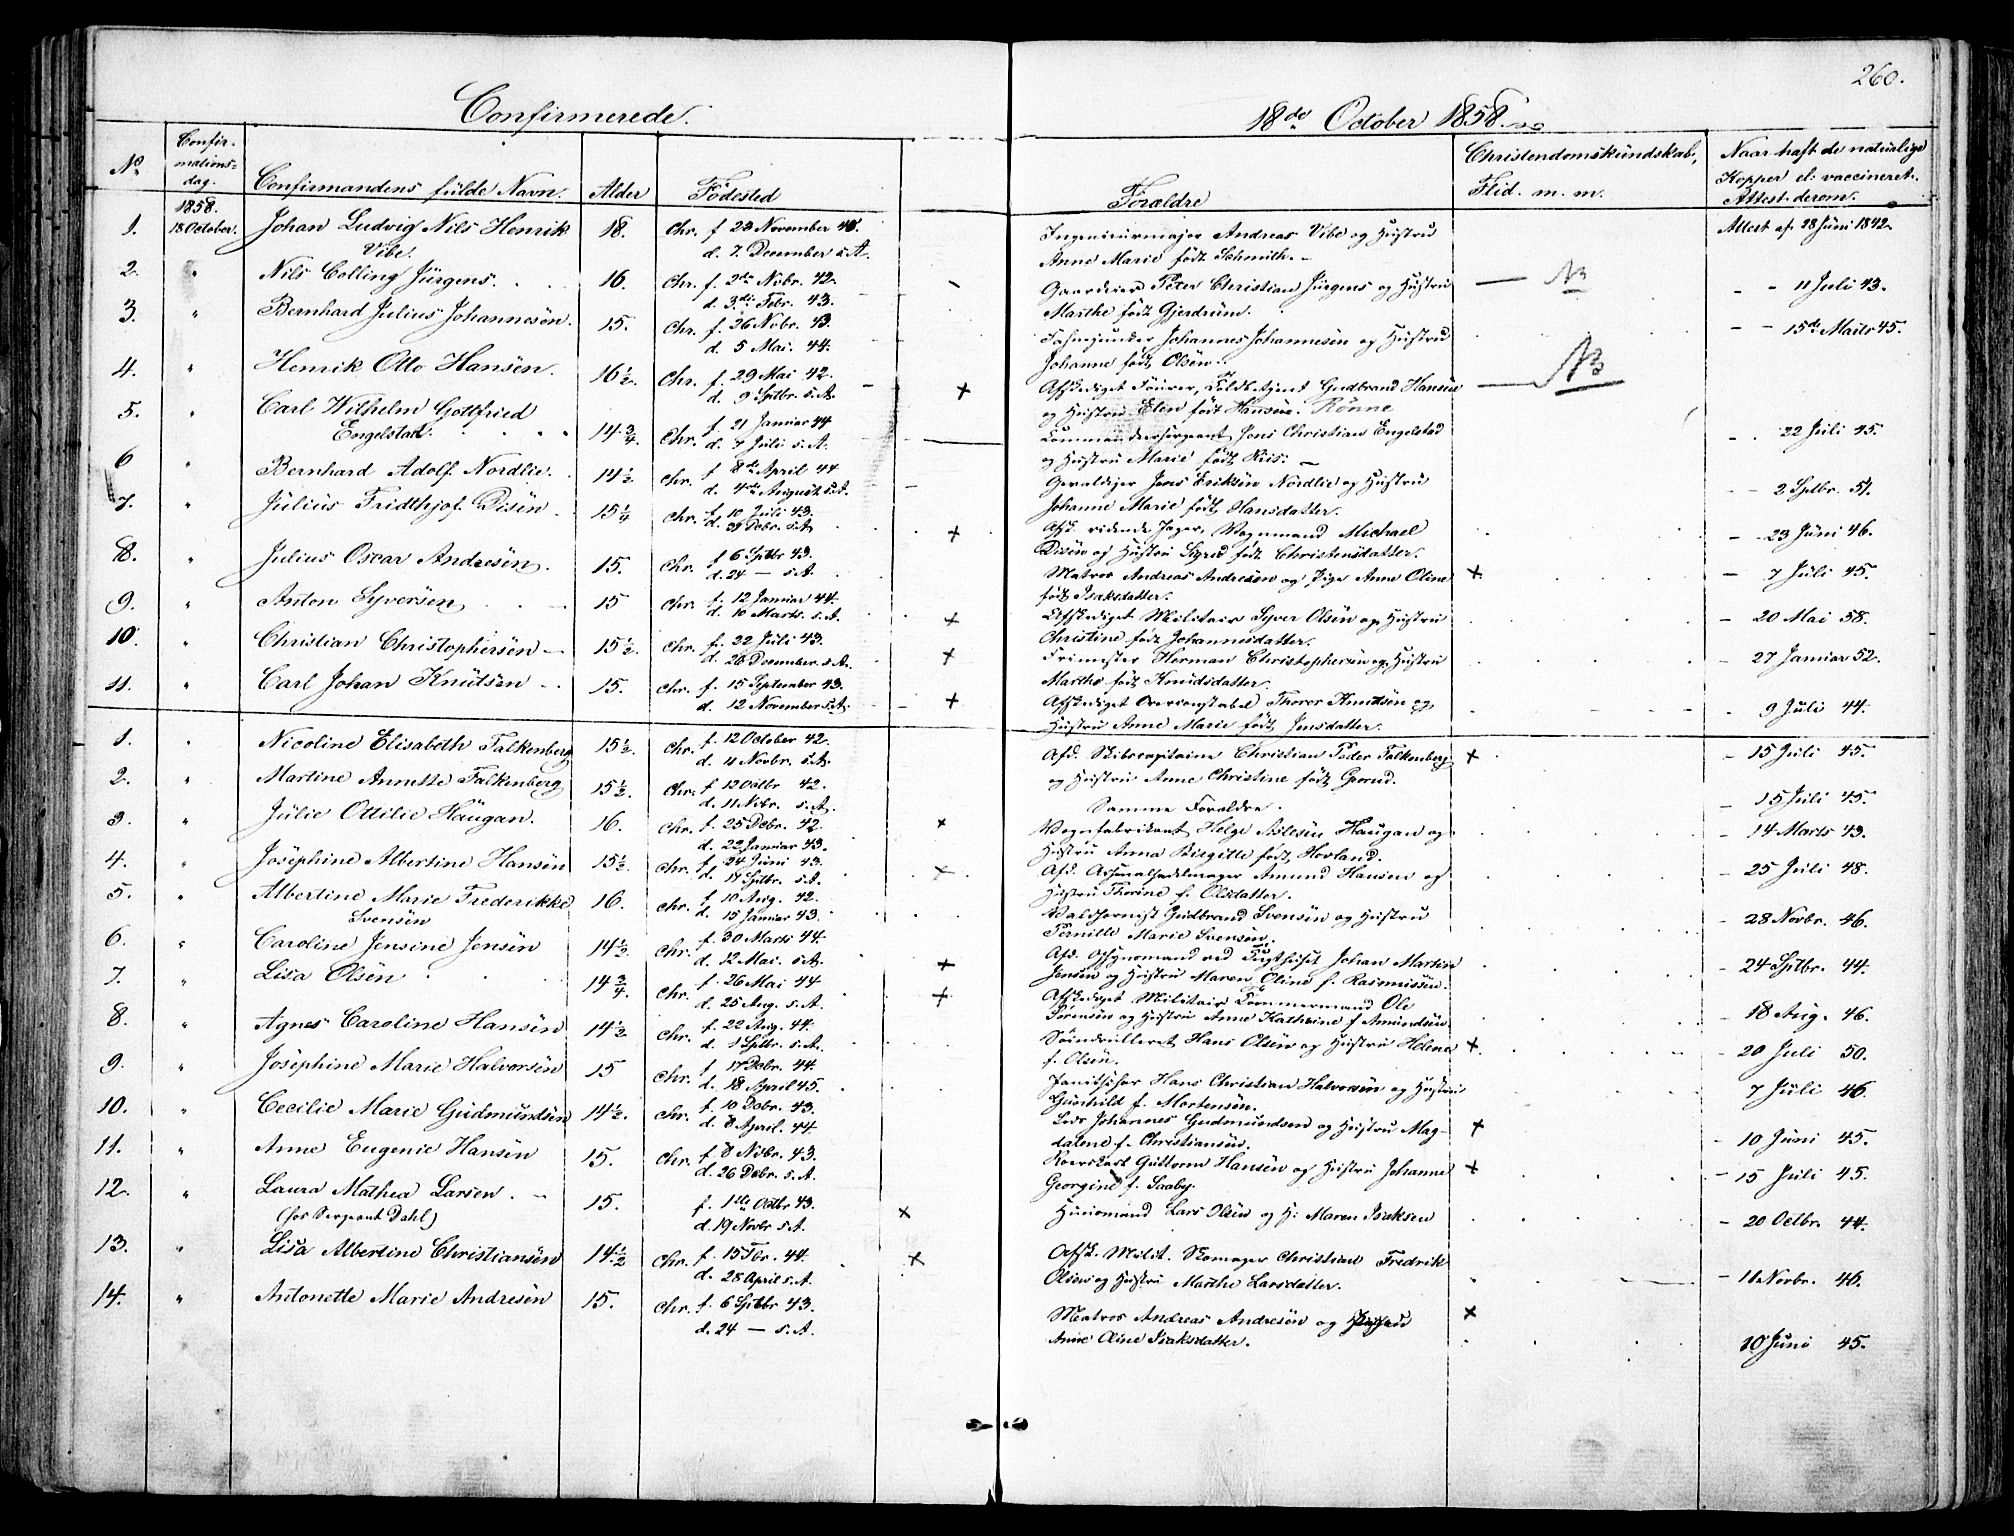 260.
Confirmerede. 18de October 1858.
No Confirmationsdag. Confirmandens fulde Navn. Alder Födested Forældre Christendomskundskab, Flid. m. m. Naar haft de naturlige Kopper el. vaccineret. Attest derom.
1858.
1. 18 October. Johan Ludvig Nils Henrik 18. Chr. f. 23 November 40. Ingenieurmajor Andreas Vibe og Hustru Attest af 28 Juni 1842.
Vibe. d. 7. December s. A. Anne Marie født Schmith.
2. " Nils Colling Jürgens. 16. Chr. f. 2de Nobr. 42. Gaardeier Peter Christian Jürgens og Hustru NB 11 Juli 43.
d. 3die Febr. 43. Marthe født Gjerdrum.
3. " Bernhard Julius Johannesen. 15. Chr. f. 26 Nobr. 43. Fahnejunker Johannes Johannesen og Hustru 15de Marts 45.
d. 5 Mai. 44. Johanne født Olsen.
4. " Henrik Otto Hansen. 16 1/2. Chr. f. 29 Mai 42. + Afskediget Fourer, Gudbrand Hansen NB
d. 9 Sptbr. s. A. og Hustru Elen født Hansen. Rönne
5. " Carl Wilhelm Gottfried f. 21 Januar 44 Commandeersergeant Jens Christian Engelstad
Engelstad. 14 3/4. Chr. d. 7 Juli s. A. og Hustru Marie født Riis. 22 Juli 45.
6 " Bernhard Adolf Nordlie. 14 1/2. Chr. f 8de April 44 Jens Eriksen Nordlie og Hustru
d. 4de August s. A. Johanne Marie født Hansdatter. 2 Sptbr. 51.
7. " Julius Fridthjof Disen 15 1/4 Chr. f. 10 Juli 43. + Afsk. ridende Jæger, Vognmand Michael 23 Juni 46.
d. 31 Debr. s. A. Disen og Hustru Sigrid født Christensdatter.
8. " Julius Oscar Andresen. 15. Chr. f 6 Sptbr 43. Matros Andreas Andresen og Pige Anne Oline + 7 Juli 45.
d. 24 — s. A. født Isaksdatter.
9. " Anton Syversen 15 Chr. f. 12 Januar 44. + Afskediget Militair Syver Olsen og Hustru 20 Mai 58.
d. 10 Marts. s. A. Christine født Johannesdatter.
10. " Christian Christophersen 15 1/2. Chr. f. 22 Juli 43. + Frimester Herman Christophersen og Hustru 27 Januar 52.
d. 26 December s. A. Marthe født Knudsdatter.
11. " Carl Johan Knutsen 15. Chr. f. 15 September 43. + Afskediget Overconstabel Thorer Knudsen og 9 Juli 44.
d. 12 November s. A. Hustru Anne Marie født Jensdatter.
1. " Nicoline Elisabeth Falkenberg 15 1/2. Chr. f. 12 October 42. Afd. Skibscapitaine Christian Peder Falkenberg + 15 Juli 45.
d. 4 Novbr. s. A. og Hustru Anne Christine født Grorud.
2. " Martine Annette Falkenberg 15 1/2. Chr. f 12 Octbr 42. Samme Forældre. 15 Juli 45.
d. 11 Nvbr. s. A.
3. " Julie Ottilie Haugan. 16. Chr. f. 25 Debr. 42. + Vognfabrikant Helge Aslesen Haugan og 14 Marts 43.
d. 22 Januar 43. Hustru Anna Birgitte født Hovland.
4. " Josephine Albertine Hansen 15 1/2. Chr. f. 24 Juni 43. + Afd. Arsenalsadelmager Amund Hansen og 25 Juli 48.
d. 17 Sptbr. s. A. Hustru Thorine f. Olsdatter.
5. " Albertine Marie Frederikke 16. Chr. f. 10 Aug. 42. Valdhornist Gudbrand Svensen og Hustru 28 Novbr. 46.
Svensen d. 15 Januar 43. Pernille Marie Svensen.
6. " Caroline Jensine Jensen 14 1/2. Chr. f. 30 Marts 44. + Afd. Opsynsmand ved Tugthuset Johan Martin 24 Sptbr. 44.
d. 12 Mai. s. A. Jensen og Hustru Maren Oline f. Rasmussen.
7. " Lisa Olsen 14 3/4. Chr. f. 26 Mai 44 + Afskediget Militair Tømmermand Ole 18 Aug. 46.
d. 25 Aug. s. A. Sørensen og Hustru Anne Kathrine f Amundsen
8. " Agnes Caroline Hansen 14 1/2 Chr. f. 22 Aug. 44. Søindrulleret Hans Olsen og Hustru Helene + 20 Juli 50.
d. 1 Sptbr. s. A. f. Olsen.
9. " Josephine Marie Halvorsen 15 Chr. f 17 Debr. 44. Janitschar Hans Christian Halvorsen og Hustru 7 Juli 46.
d. 18 April 45. Gunhild f. Mortensen.
10. " Cecilie Marie Gudmundsen 14 1/2. Chr. f. 10 Debr. 43. Lods Johannes Gudmundsen og Hustru Mag- + 10 Juni 45.
d. 8 April. 44. dalene f. Christiansen.
11. " Anne Eugenie Hansen 15. Chr. f 8 Nvbr. 43. Guttorm Hansen og Hustru Johanne + 15 Juli 45.
d. 26 Debr. s. A. Georgine f. Saaby.
12. " Laura Mathea Larsen. 15. f. 1ste Octbr 43. + Huusmand Lars Olsen og H: Maren Isaksen 20 Octbr. 44.
(hos Sergeant Dahl) d. 19 Novbr s. A.
13. " Lisa Albertine Christiansen 14 1/2 Chr. f. 15 Fbr. 44. + Afsk. Milit. Skomager Christian Fredrik 11 Novbr. 46.
d. 28 April s. A. Olsen og Hustru Marthe Larsdatter.
14. " Antonette Marie Andresen 15. Chr. f. 6 Sptbr 43. Matros Andreas Andresen og +
d. 24 — s. A. Anne Oline Isaksdatter. 10 Juni 45.